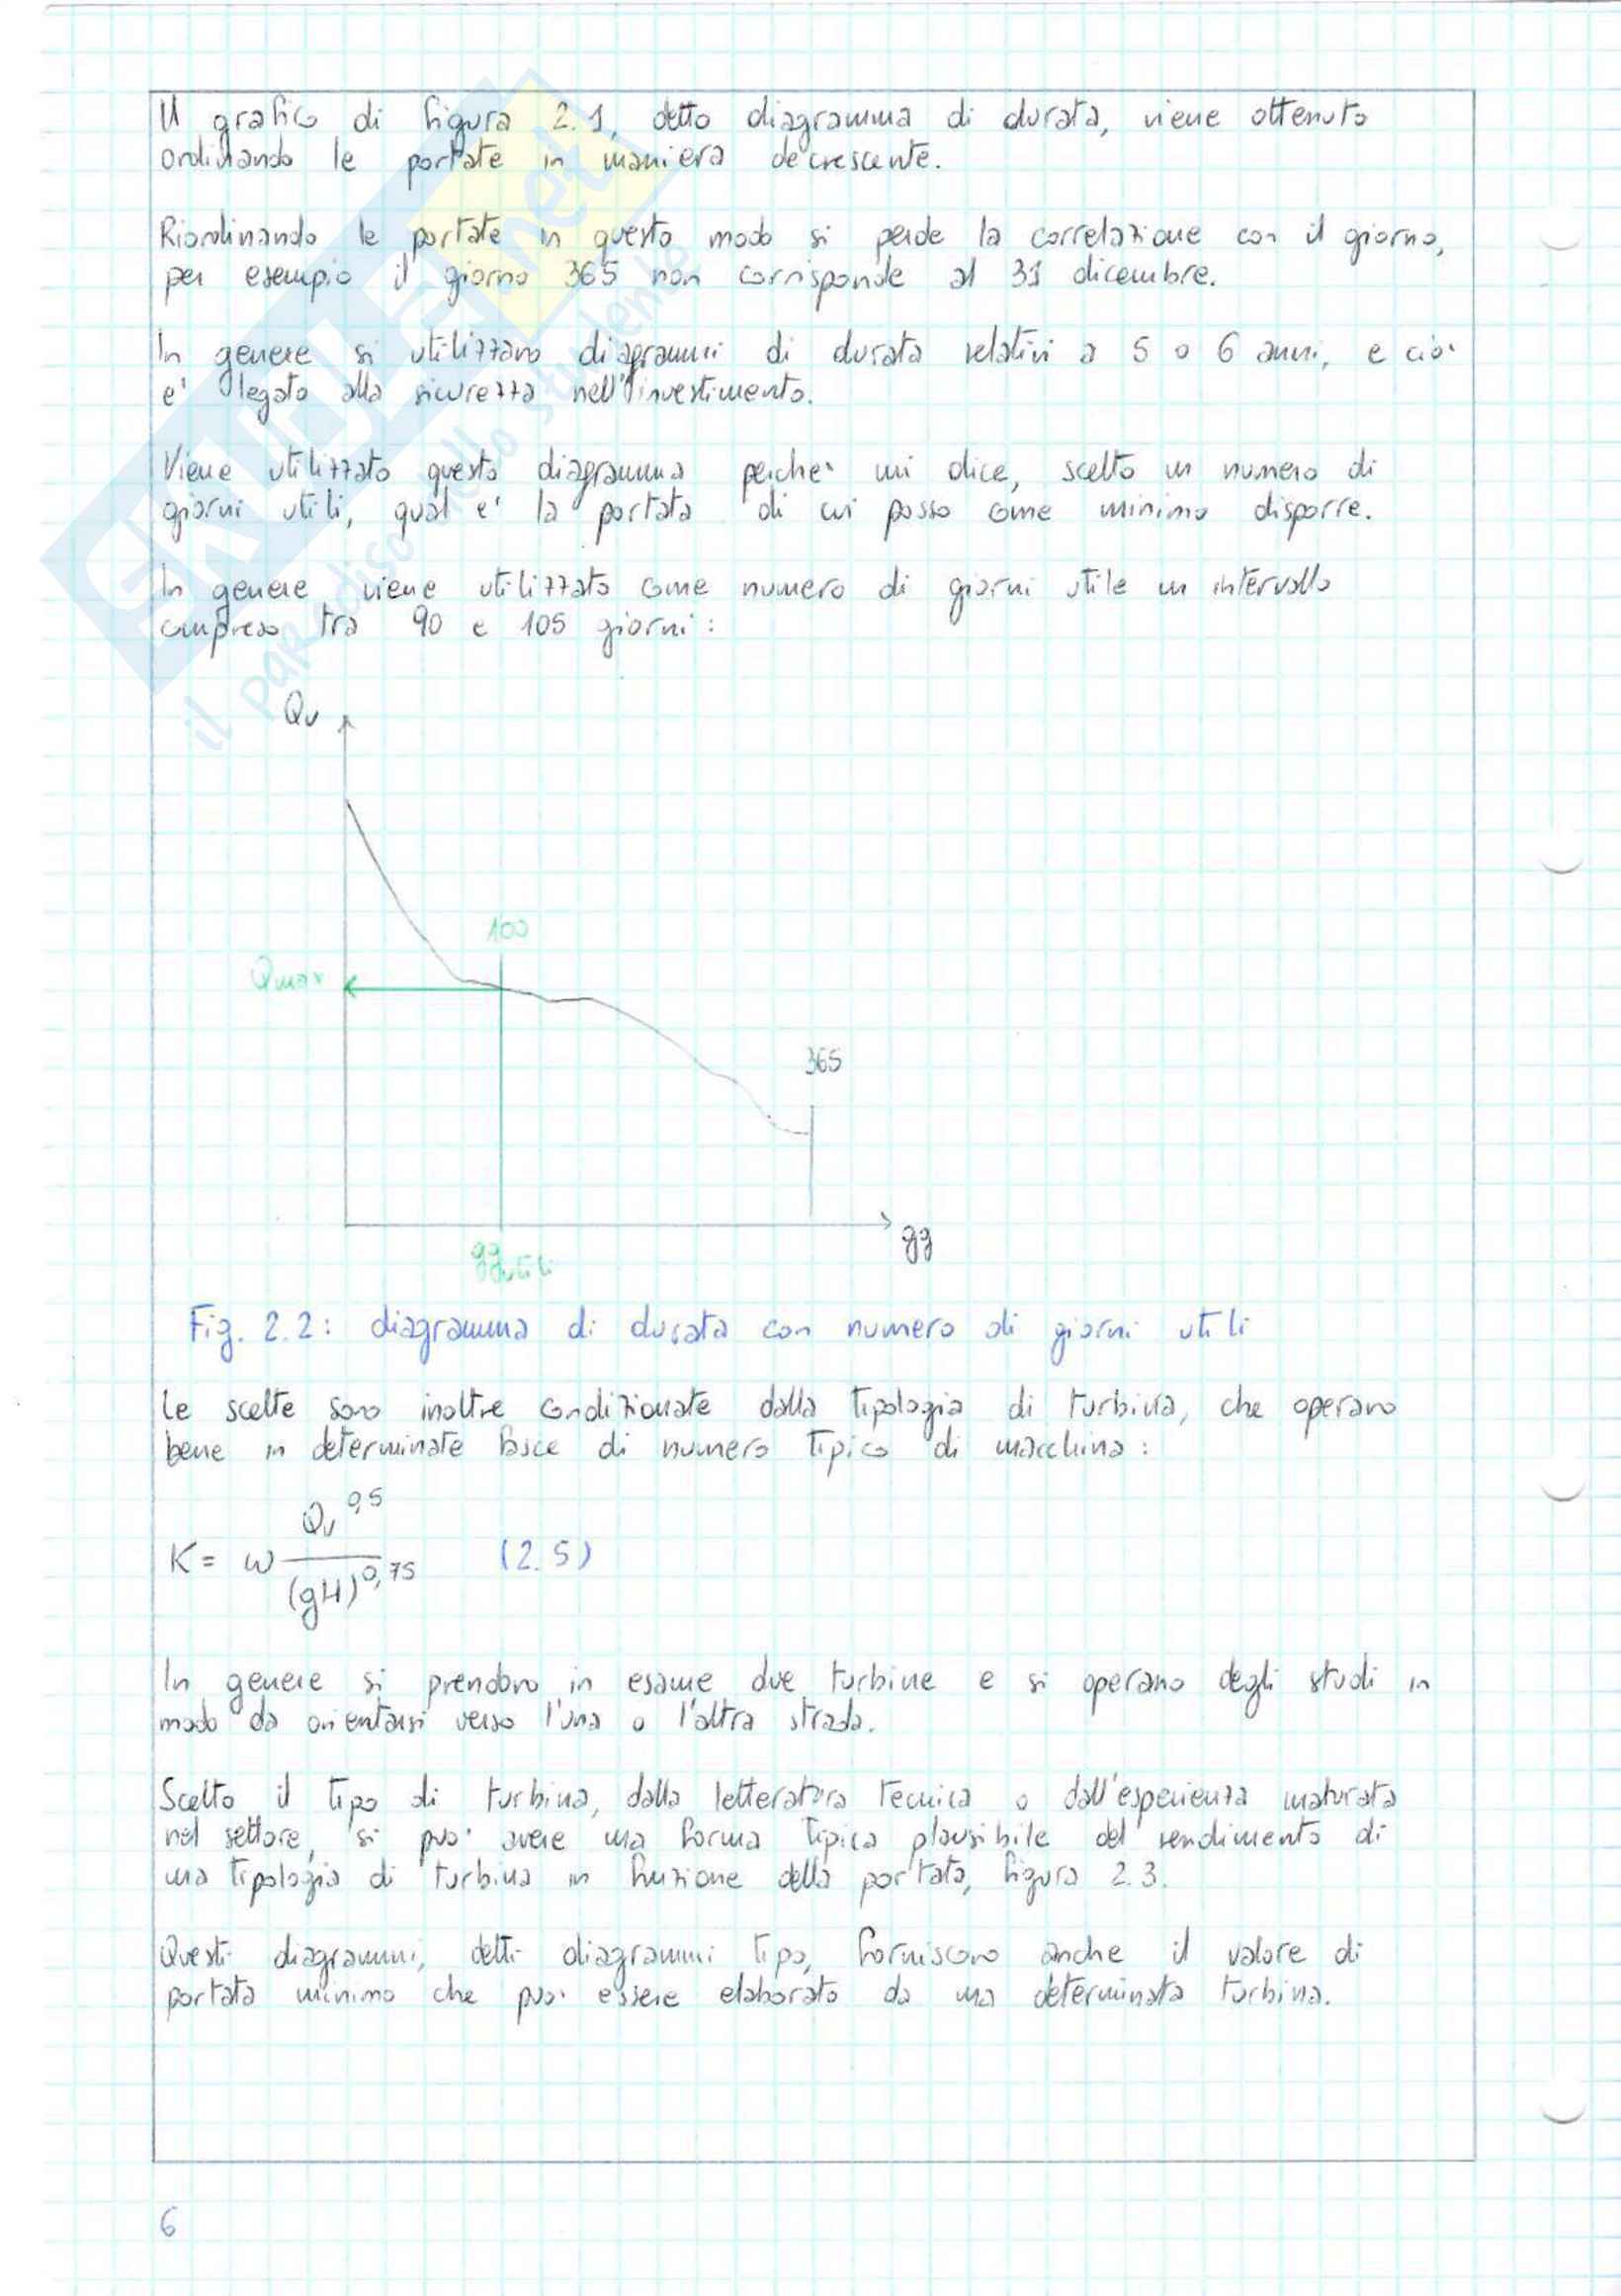 Il grafico di figura 2.1, detto diagramma di durata, viene ottenuto
ordinando le portate in maniera decrescente.
Riordinando le portate in questo modo si perde la correlazione con il giorno,
per esempio il giorno 365 non corrisponde al 31 dicembre.
In genere si utilizzano diagrammi di durata relativi a 5 o 6 anni, e cio'
e' legato alla sicurezza nell'investimento.
Viene utilizzato questo diagramma perche' mi dice, scelto un numero di
giorni utili, qual e' la portata di cui posso come minimo disporre.
In genere viene utilizzato come numero di giorni utile un intervallo
compreso tra 90 e 105 giorni:
Qv
100
Qmax
365
gg
gg utili
Fig. 2.2: diagramma di durata con numero di giorni utili
Le scelte sono inoltre condizionate dalla tipologia di turbina, che operano
bene in determinate fasce di numero tipico di macchina:
K = ω Qv^0,5 / (gH)^0,75 (2.5)
In genere si prendono in esame due turbine e si operano degli studi in
modo da orientarsi verso l'una o l'altra strada.
Scelto il tipo di turbina, dalla letteratura tecnica o dall'esperienza maturata
nel settore, si puo' avere una forma tipica plausibile del rendimento di
una tipologia di turbina in funzione della portata, figura 2.3.
Questi diagrammi, detti diagrammi tipo, forniscono anche il valore di
portata minimo che puo' essere elaborato da una determinata turbina.
6
SKUOLA.net
il paradiso dello studente